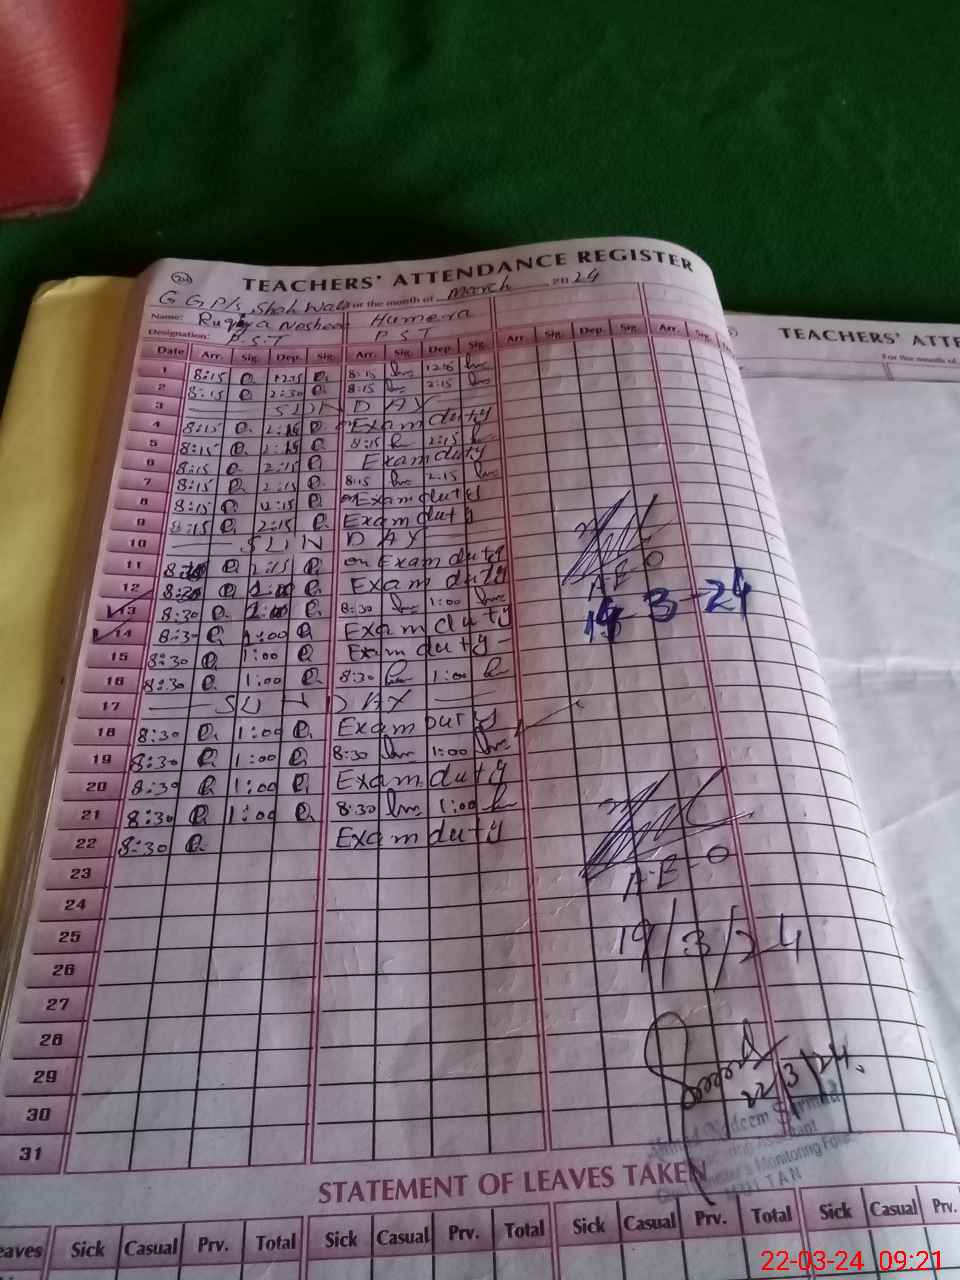 TEACHERS' ATTENDANCE REGISTER
G G P/S Shah Wala for the month of March 2024
Name: Ruqiya Nosheen Humera
Designation: P.S.T P S T
Date Arr. Sig. Dep. Sig. Arr. Sig. Dep. Sig. Arr. Sig. Dep. Sig. Arr. Sig.
1 8:15 12:15 8:15
2 8:15 2:30 8:15 2:15
3 SUN DAY
4 8:15 2:15 Exam duty
5 8:15 2:15 8:15 2:15
6 8:15 2:15 Exam duty
7 8:15 2:15 8:15 2:15
8 8:15 12:15 on Exam duty
9 8:15 2:15 Exam duty
10 SUN DAY
11 2:15 on Exam duty
12 8:30 1:00 Exam duty
13 8:30 1:00 8:30 1:00
14 8:30 1:00 Exam duty
15 8:30 1:00 Exam duty
16 8:30 1:00 8:30 1:00
17 SUN DAY
18 8:30 1:00 Exam Duty
19 8:30 1:00 8:30 1:00
20 8:30 1:00 Exam duty
21 8:30 1:00 8:30 1:00
22 8:30 Exam duty
23
24
25
26
27
28
29
30
31
A.E.O
3-24
A.E.O
19/3/24
22/3/24.
Monitoring
STATEMENT OF LEAVES TAKEN
eaves Sick Casual Prv. Total Sick Casual Prv. Total Sick Casual Prv. Total Sick Casual Prv.
TEACHERS' ATTE
For the month of
22-03-24 09:21